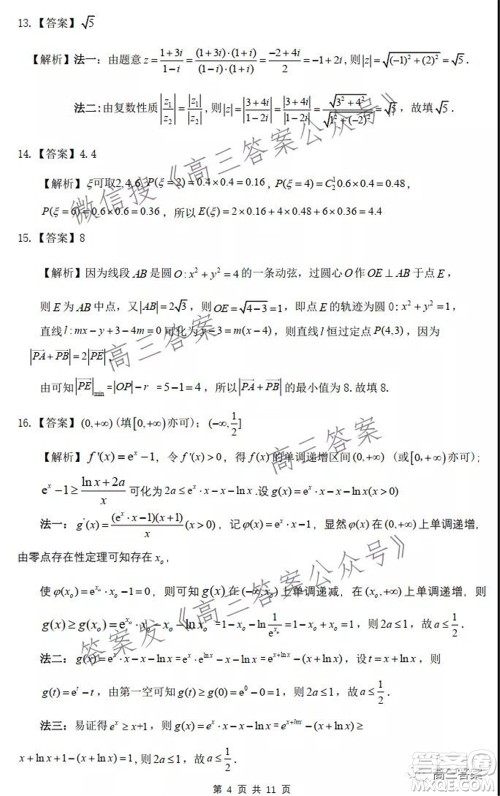 13.【答案】√5
【解析】法一：由题意 z = (1+3i)/(1-i) = (1+3i)·(1+i)/(1-i)·(1+i) = (-2+4i)/2 = -1+2i，则|z| = √((-1)²+(2)²) = √5．
法二：由复数性质|z₁/z₂| = |z₁|/|z₂|，则|z| = |3+4i|/|1-2i| = |3+4i|/|1-2i| = √(3²+4²)/√(1²+(-2)²) = √5，故填√5．
14.【答案】4.4
【解析】ξ可取2,4,6, P(ξ=2)=0.4×0.4=0.16，P(ξ=4)=C₂¹0.6×0.4=0.48，
P(ξ=6)=0.6×0.6=0.36，所以 E(ξ)=2×0.16+4×0.48+6×0.36=4.4
15.【答案】8
【解析】因为线段 AB 是圆 O: x²+y²=4 的一条动弦，过圆心 O 作 OE⊥AB 于点 E，
则 E 为 AB 中点，又|AB|=2√3，则 OE=√(4-3)=1，即点 E 的轨迹为圆 O: x²+y²=1，
直线 l: mx-y+3-4m=0 可化为 y-3=m(x-4)，则直线 l 恒过定点 P(4,3)，因为
|PA+PB|=2|PE|
由可知|PE|min=|OP|-r =5-1=4，所以|PA+PB|的最小值为 8.故填 8．
16.【答案】(0,+∞)（填[0,+∞)亦可）；(-∞,1/2]
【解析】f'(x)=eˣ-1，令 f'(x)>0，得 f(x)的单调递增区间(0,+∞)（或[0,+∞)亦可）；
eˣ-1≥(ln x+2a)/x 可化为 2a≤eˣ·x-x-ln x.设 g(x)=eˣ·x-x-ln x(x>0)
法一：g'(x)=(eˣ·x-1)(x+1)/x (x>0)，记φ(x)=eˣ·x-1，显然φ(x)在(0,+∞)上单调递增，
由零点存在性定理可知存在 x₀，
使φ(x₀)=e^x₀·x₀-1=0，则可知 g(x)在(0,x₀)上单调递减，在(x₀,+∞)上单调递增，则
g(x)≥g(x₀)=e^x₀·x₀-x₀-ln x₀=1-x₀-ln(1/e^x₀)=1-x₀+x₀=1，则 2a≤1，故 a≤1/2．
法二：g(x)=eˣ·x-x-ln x=eˣ·e^(ln x)-x-ln x=e^(x+ln x)-(x+ln x)，设 t=x+ln x，则
g(t)=eᵗ-t，由第一空可知 g(t)≥g(0)=e⁰-0=1，则 2a≤1，故 a≤1/2．
法三：易证得 eˣ≥x+1，则 g(x)=eˣ·x-x-ln x=e^(x+lnx)-(x+ln x)≥
x+ln x+1-(x+ln x)=1,则 2a≤1，故 a≤1/2．
第 4 页 共 11 页
微信搜《高三答案公众号》
高三答案
高三答案
答案发《高三答案公众号》
高三答案